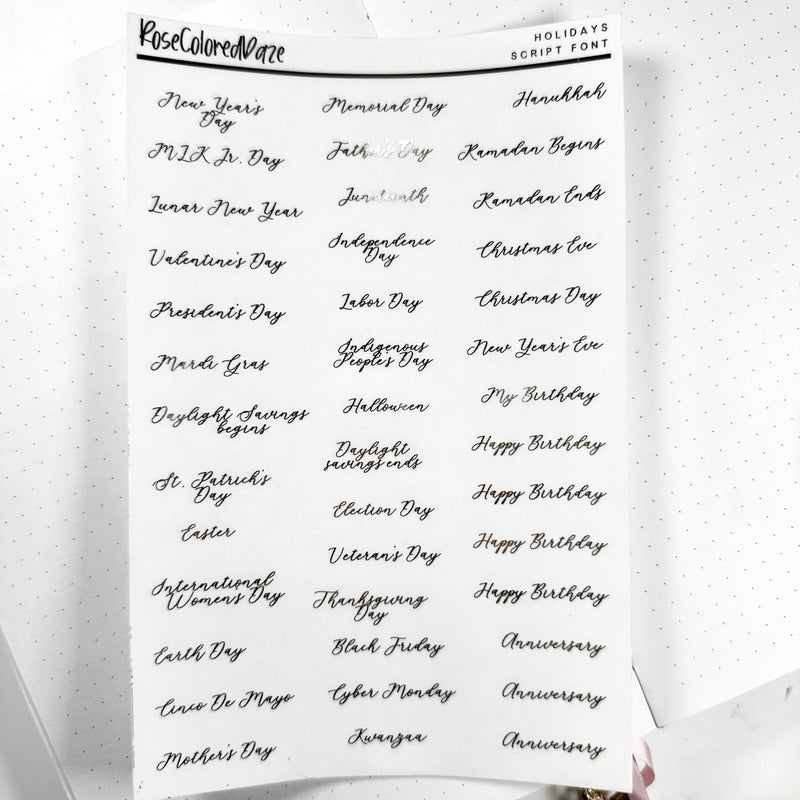 RoseColoredDaze
HOLIDAYS
SCRIPT FONT
New Year's
Day
MLK Jr. Day
Lunar New Year
Valentine's Day
President's Day
Mardi Gras
Daylight Savings
begins
St. Patrick's
Day
Easter
International
Women's Day
Earth Day
Cinco De Mayo
Mother's Day
Memorial Day
Father's Day
Juneteenth
Independence
Day
Labor Day
Indigenous
People's Day
Halloween
Daylight
savings ends
Election Day
Veteran's Day
Thanksgiving
Day
Black Friday
Cyber Monday
Kwanzaa
Hanukkah
Ramadan Begins
Ramadan Ends
Christmas Eve
Christmas Day
New Year's Eve
My Birthday
Happy Birthday
Happy Birthday
Happy Birthday
Happy Birthday
Anniversary
Anniversary
Anniversary